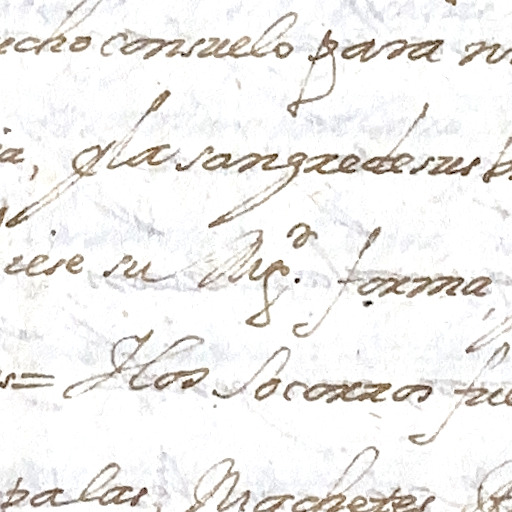 ucho consuelo para n
ia, q la sangre de sus
iese su Mgᵈ. forma
s= Y los socorros fue
palas, Machetes,